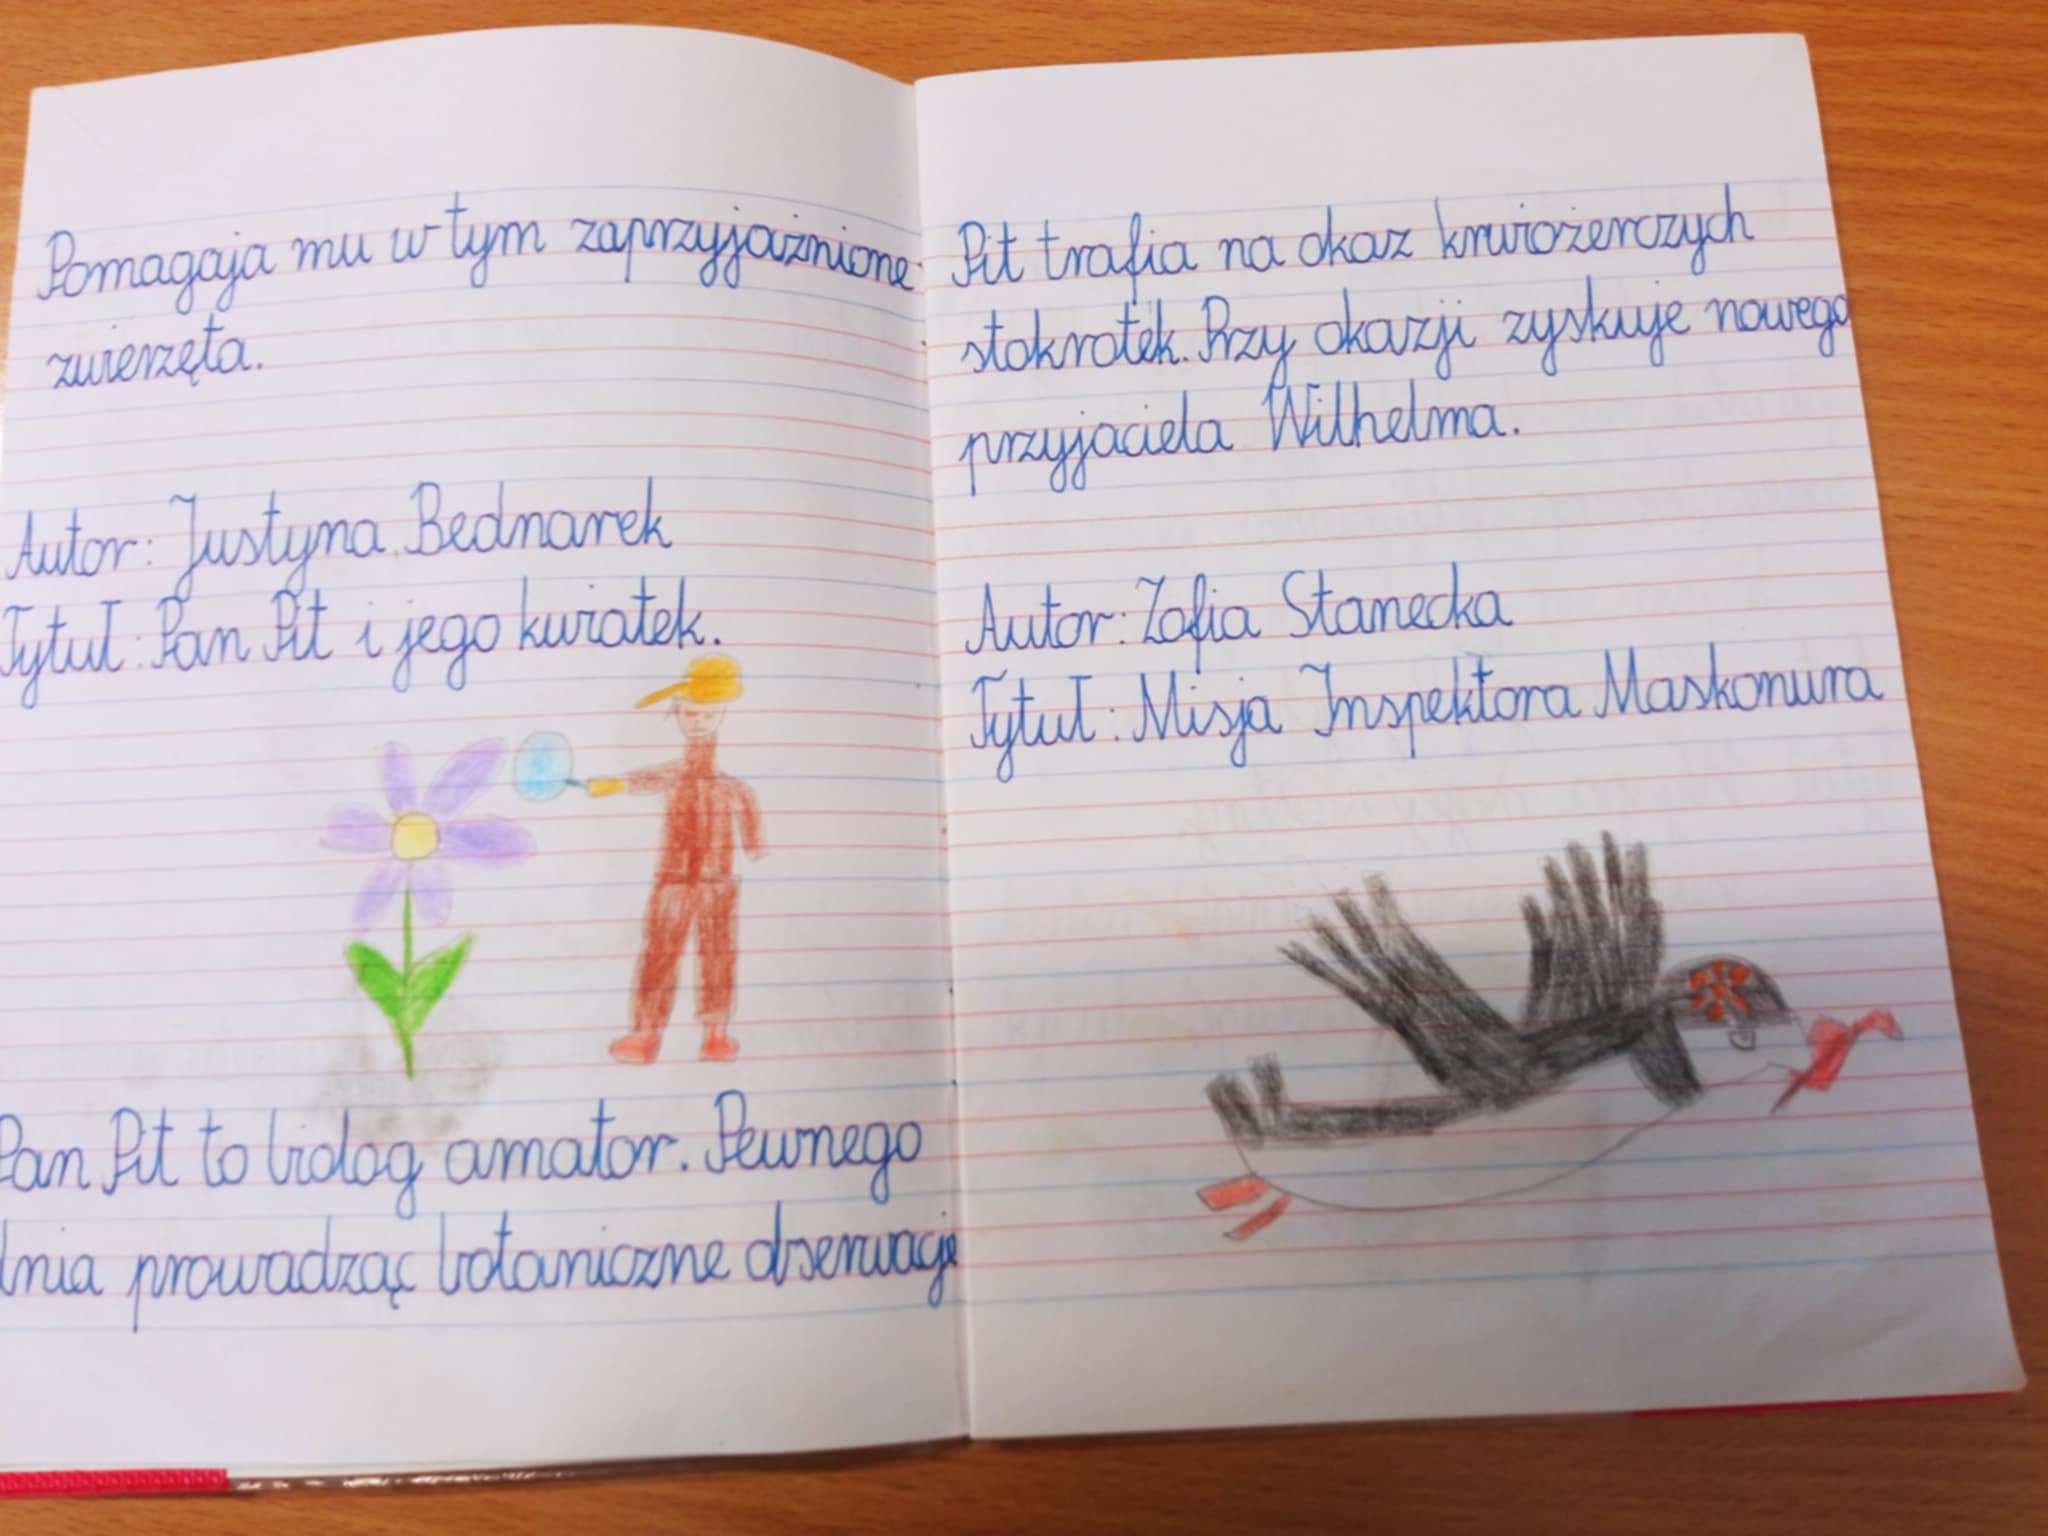 Pomagaja mu w tym zaprzyjaźnione
zwierzęta.
Autor: Justyna Bednarek
Tytuł: Pan Pit i jego kwiatek.
Pan Pit to biolog amator. Pewnego
dnia prowadząc botaniczne obserwacje
Pit trafia na okaz krwiożerczych
stokrotek. Przy okazji zyskuje nowego
przyjaciela Wilhelma.
Autor: Zofia Stanecka
Tytuł: Misja Inspektora Maskonura